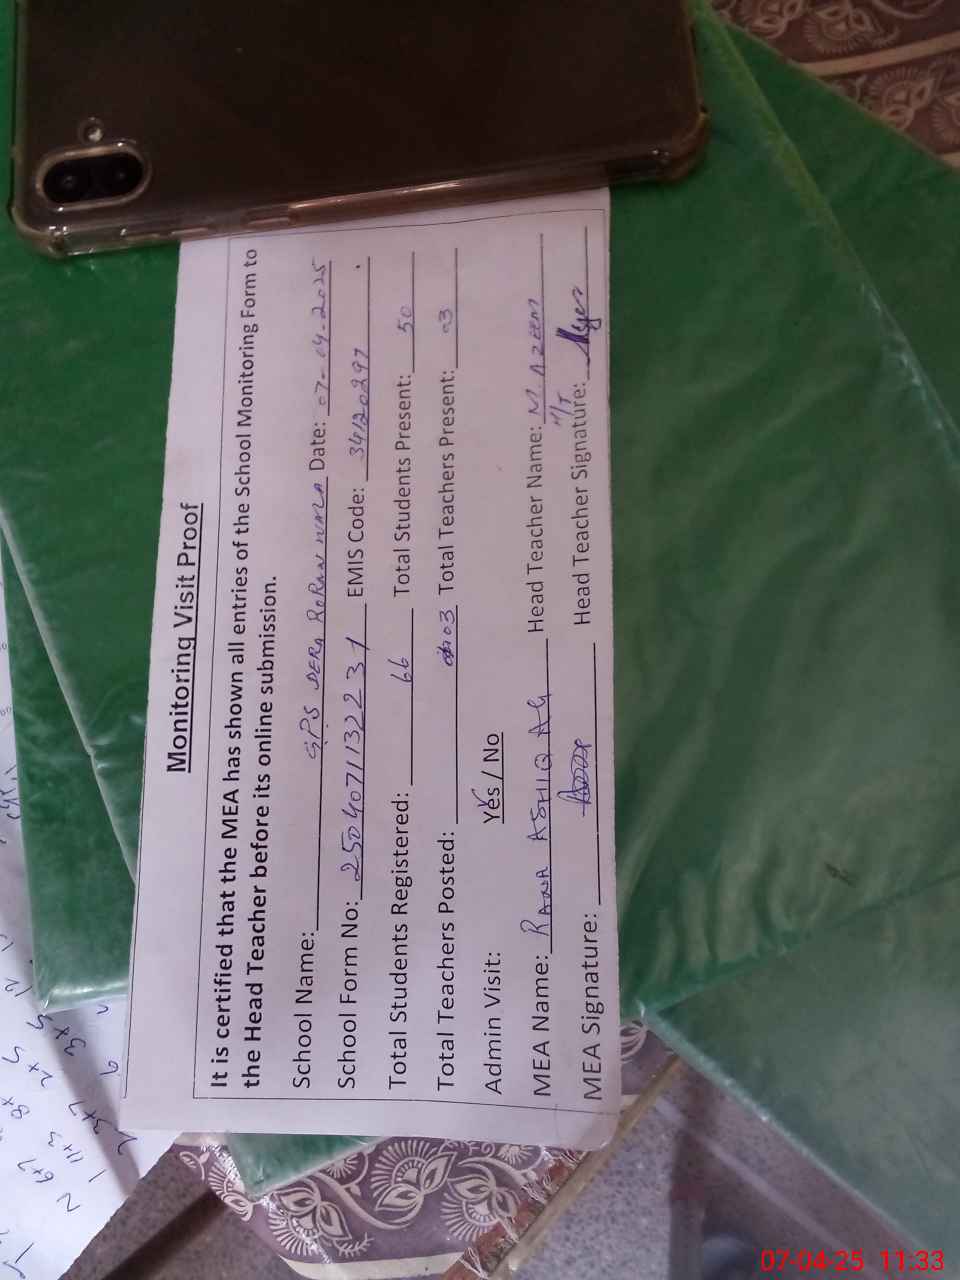 Monitoring Visit Proof
It is certified that the MEA has shown all entries of the School Monitoring Form to
the Head Teacher before its online submission.
School Name: GPS DERA RORAN WALA Date: 07-04-2025
School Form No: 25040711322231 EMIS Code: 34120297
Total Students Registered: 66 Total Students Present: 50
Total Teachers Posted: 03 Total Teachers Present: 03
Admin Visit: Yes / No
MEA Name: RANA ASHIQ Ali Head Teacher Name: M AZEEM
H/T
MEA Signature: Head Teacher Signature:
07-04-25 11:33